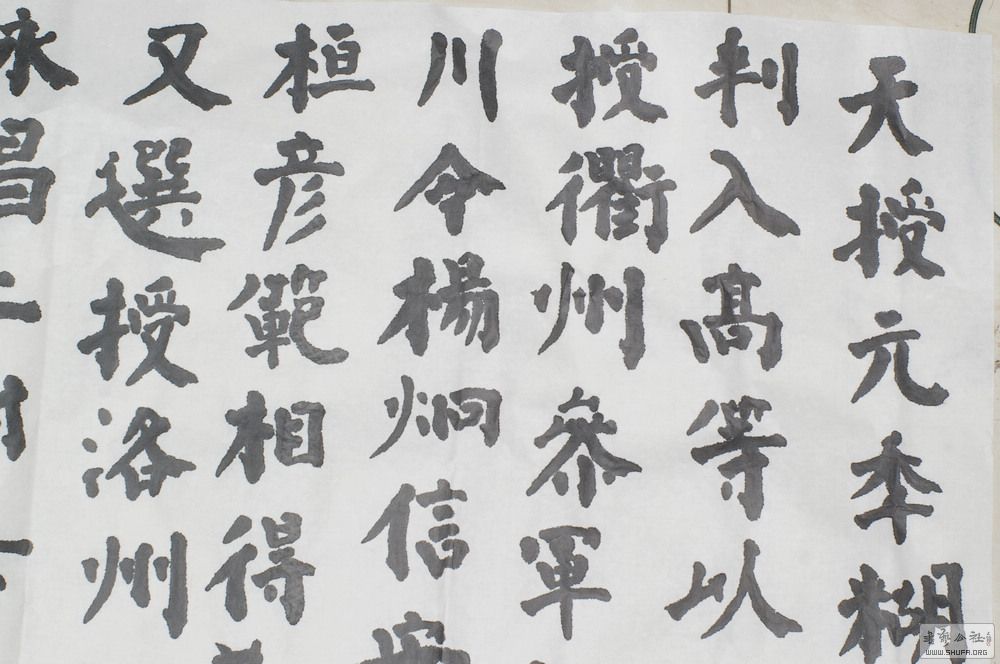 天授元年糊
判入高等以
授衢州參軍
川令楊炯信安
桓彦範相得
又選授洛州
永昌二
书法公社
WWW.SHUFA.ORG